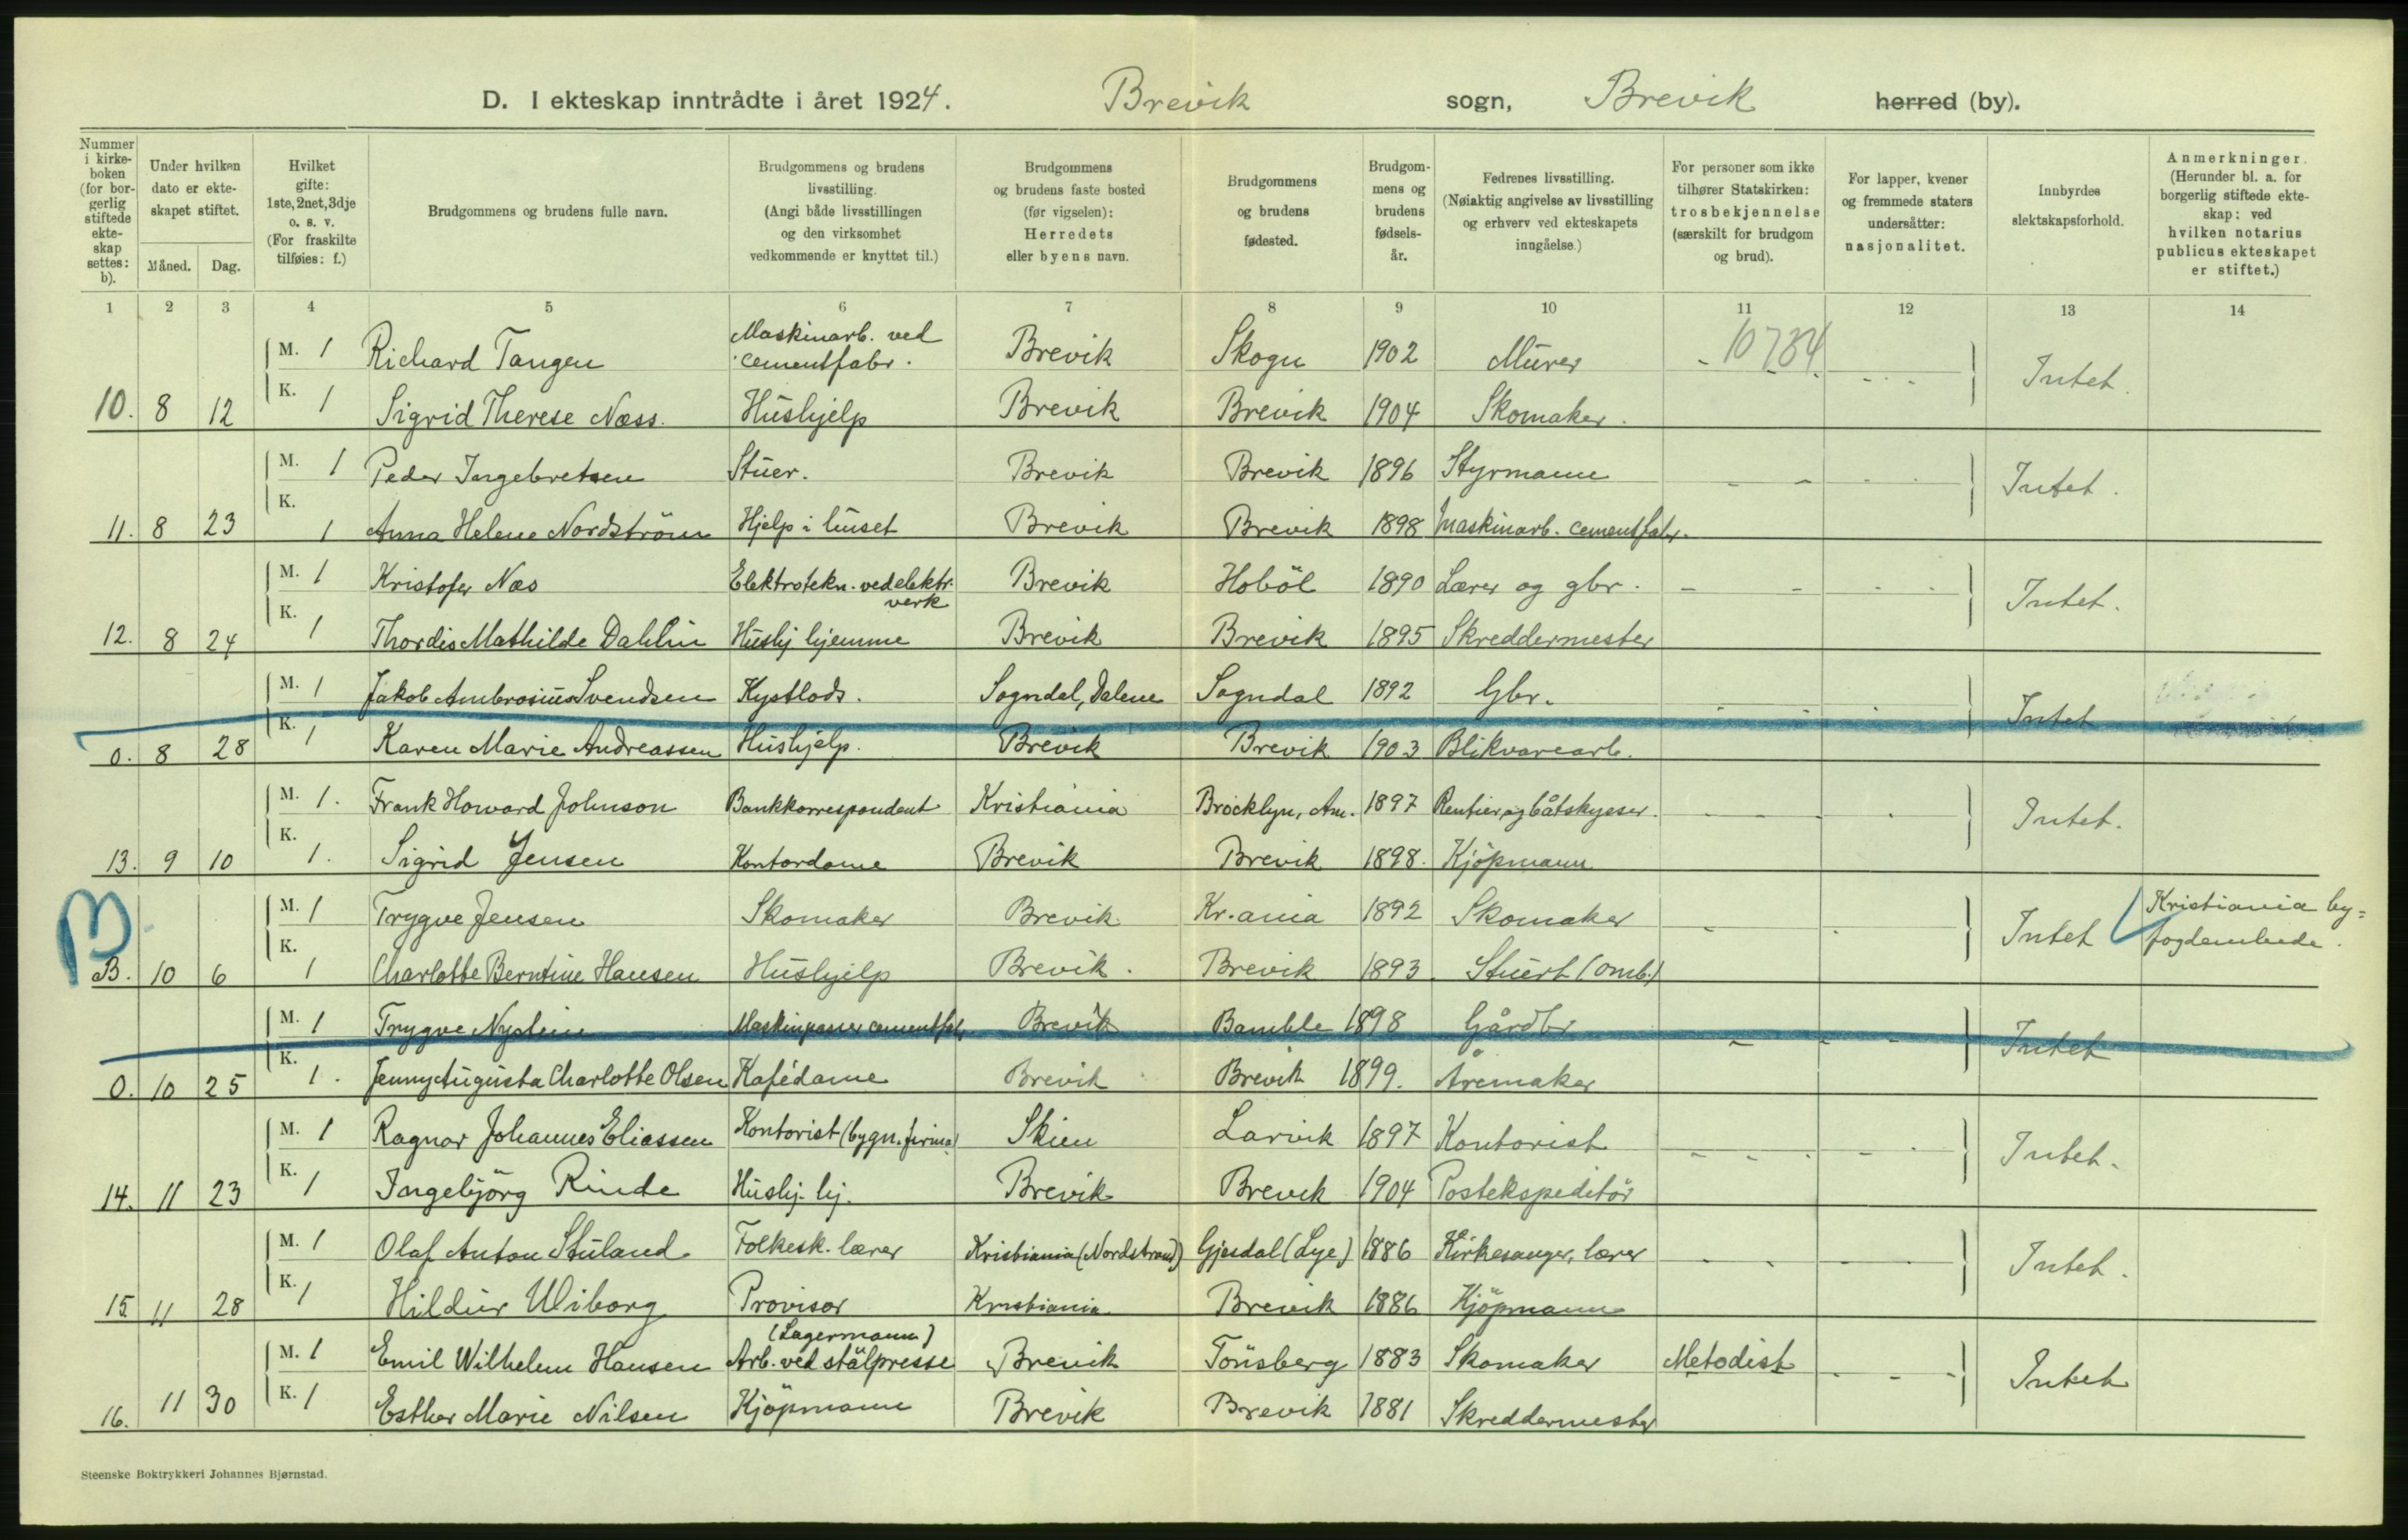 D. I ekteskap inntrådte i året 1924. Brevik sogn, Brevik herred (by).
Nummer i kirkeboken (for borgerlig stiftede ekteskap settes: b).
Under hvilken dato er ekteskapet stiftet.
Måned. Dag.
Hvilket gifte: 1ste, 2net, 3dje o. s. v. (For fraskilte tilføies: f.)
Brudgommens og brudens fulle navn.
Brudgommens og brudens livsstilling. (Angi både livsstillingen og den virksomhet vedkommende er knyttet til.)
Brudgommens og brudens faste bosted (før vigselen): Herredets eller byens navn.
Brudgommens og brudens fødested.
Brudgommens og brudens fødselsår.
Fedrenes livsstilling. (Nøiaktig angivelse av livsstilling og erhverv ved ekteskapets inngåelse.)
For personer som ikke tilhører Statskirken: trosbekjennelse (særskilt for brudgom og brud).
For lapper, kvener og fremmede staters undersåtter: nasjonalitet.
Innbyrdes slektskapsforhold.
Anmerkninger. (Herunder bl. a. for borgerlig stiftede ekteskap: ved hvilken notarius publicus ekteskapet er stiftet.)
1 2 3 4 5 6 7 8 9 10 11 12 13 14
M. 1 Richard Tangen Maskinarb. ved cementfabr. Brevik Skogn 1902 Murer 10784 Intet.
10. 8 12 K. 1 Sigrid Therese Næss. Hushjelp Brevik Brevik 1904 Skomaker.
M. 1 Peder Ingebretsen Stuer. Brevik Brevik 1896 Styrmann Intet.
11. 8 23 K. 1 Anna Helene Nordström Hjelp i huset Brevik Brevik 1898 Maskinarb. cementfabr.
M. 1 Kristofer Næs Elektrotekn. ved elektr. verk Brevik Hoböl 1890 Lærer og gbr. Intet.
12. 8 24 K. 1 Thordis Mathilde Dahlin Hushj hjemme Brevik Brevik 1895 Skreddermester
M. 1 Jakob Ambrosius Svendsen Kystlods. Sogndal, Dalene Sogndal 1892 Gbr. Intet
0. 8 28 K. 1 Karen Marie Andreassen Hushjelp. Brevik Brevik 1903 Blikvarearb.
M. 1. Frank Howard Johnson Bankkorrespondent Kristiania Brocklyn, Am. 1897 Rentier og båtskysser. Intet.
13. 9 10 K. 1. Sigrid Jensen Kontordame Brevik Brevik 1898. Kjöpmann
B.
M. 1 Trygve Jensen Skomaker Brevik Kr.ania 1892 Skomaker Intet Kristiania by=
fogdembede.
B. 10 6 K. 1 Charlotte Berntine Hansen Hushjelp Brevik. Brevik 1893 Stuert (omb.)
M. 1 Trygve Nystein Maskinpasser cementfabr. Brevik Bamble 1898 Gårdbr Intet
0. 10 25 K. 1. Jenny Augusta Charlotte Olsen Kafédame Brevik Brevik 1899. Åremaker
M. 1 Ragnar Johannes Eliassen Kontorist (bygn. firma) Skien Larvik 1897 Kontorist Intet.
14. 11 23 K. 1 Ingebjörg Rinde Hushj. hj. Brevik Brevik 1904 Postekspeditör
M. 1 Olaf Anton Stuland Folkesk. lærer Kristiania (Nordstrand) Gjesdal (Lye) 1886 Kirkesanger, lærer Intet.
15 11 28 K. 1 Hildur Wiborg Provisor Kristiania Brevik 1886 Kjöpmann
M. 1 Emil Wilhelm Hansen (Lagermann) Arb. ved stålpresse Brevik Tönsberg 1883 Skomaker Metodist Intet
16. 11 30 K. 1 Esther Marie Nilsen Kjöpmann Brevik Brevik 1881 Skreddermester
Steenske Boktrykkeri Johannes Bjørnstad.